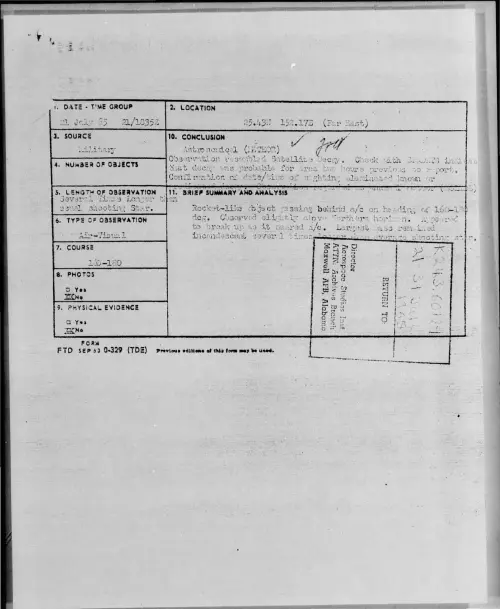 1. DATE - TIME GROUP
21 July 65 21/1035Z
2. LOCATION
25.43N 152.17E (Far East)
3. SOURCE
Military
10. CONCLUSION
Astronomical
Observation resembled Satellite Decay. Check with
that decay was probable for area two hours previous to report.
Confirmation of date/time of sighting
4. NUMBER OF OBJECTS
5. LENGTH OF OBSERVATION
Several times longer than
usual shooting Star.
11. BRIEF SUMMARY AND ANALYSIS
Rocket-like object passing behind a/c on heading of
deg. Observed slightly above Northern horizon. Appeared
to break up as it neared a/c. Largest
incandescent several times shooting star.
6. TYPE OF OBSERVATION
Air-Visual
7. COURSE
160-180
8. PHOTOS
□ Yes
No
9. PHYSICAL EVIDENCE
□ Yes
No
RETURN TO:
Director
Aerospace Studies Inst
ATTN: Archives Branch
Maxwell AFB, Alabama
FORM
FTD SEP 63 0-329 (TDE) Previous editions of this form may be used.